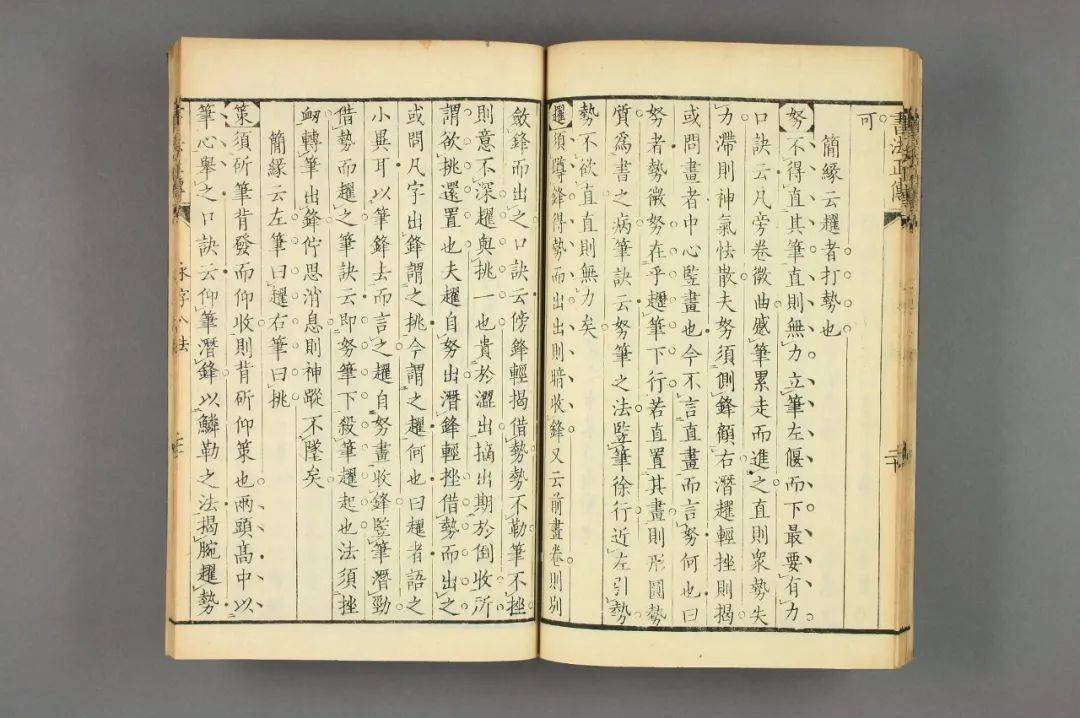 書法正傳
二十
可
簡縁云趯者打勢也
努不得直其筆直則無力立筆左偃而下最要有力
口訣云凡旁卷微曲蹙筆累走而進之直則衆勢失
力滯則神氣怯散夫努須側鋒顧右潛趯輕挫則揭
或問畫者中心竪畫也今不言直畫而言努何也曰
努者勢微努在乎趯筆下行若直置其畫則形圓勢
質爲書之病筆訣云努筆之法竪筆徐行近左引勢
勢不欲直直則無力矣
趯須蹲鋒得勢而出出則暗收鋒又云前畫卷則別
斂鋒而出之口訣云傍鋒輕揭借勢勢不勒筆不挫
則意不深趯與挑一也貴於澀出擿出期於倒收所
謂欲挑還置也夫趯自努出潛鋒輕挫借勢而出之
或問凡字出鋒謂之挑今謂之趯何也曰趯者語之
小異耳以筆鋒去而言之趯自努畫收鋒竪筆潛勁
借勢而趯之筆訣云即努筆下殺筆趯起也法須挫
衂轉筆出鋒佇思消息則神蹤不墜矣
簡縁云左筆曰趯右筆曰挑
策須斫筆背發而仰收則背斫仰策也兩頭高中以
筆心舉之口訣云仰筆潛鋒以鱗勒之法揭腕趯勢
永字八法